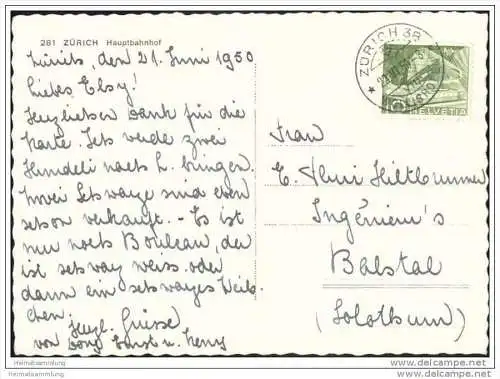 281 ZÜRICH Hauptbahnhof
Zürich, den 21. Juni 1950
Liebes Elsy!
Herzlichen Dank für die
Karte. Ich werde zwei
Hundeli nach L. bringen.
zwei Schwarze sind eben
schon verkauft. - Es ist
nur noch Boulean, der
ist schwarz weiss oder
dann ein schwarzes Weib
chen. Herzl. Grüsse
von Dory Ernst u. Heiny
ZÜRICH 38
HELVETIA
Frau
E. Hiltbrunner
Ingénieur's
Balstal
(Solothurn)